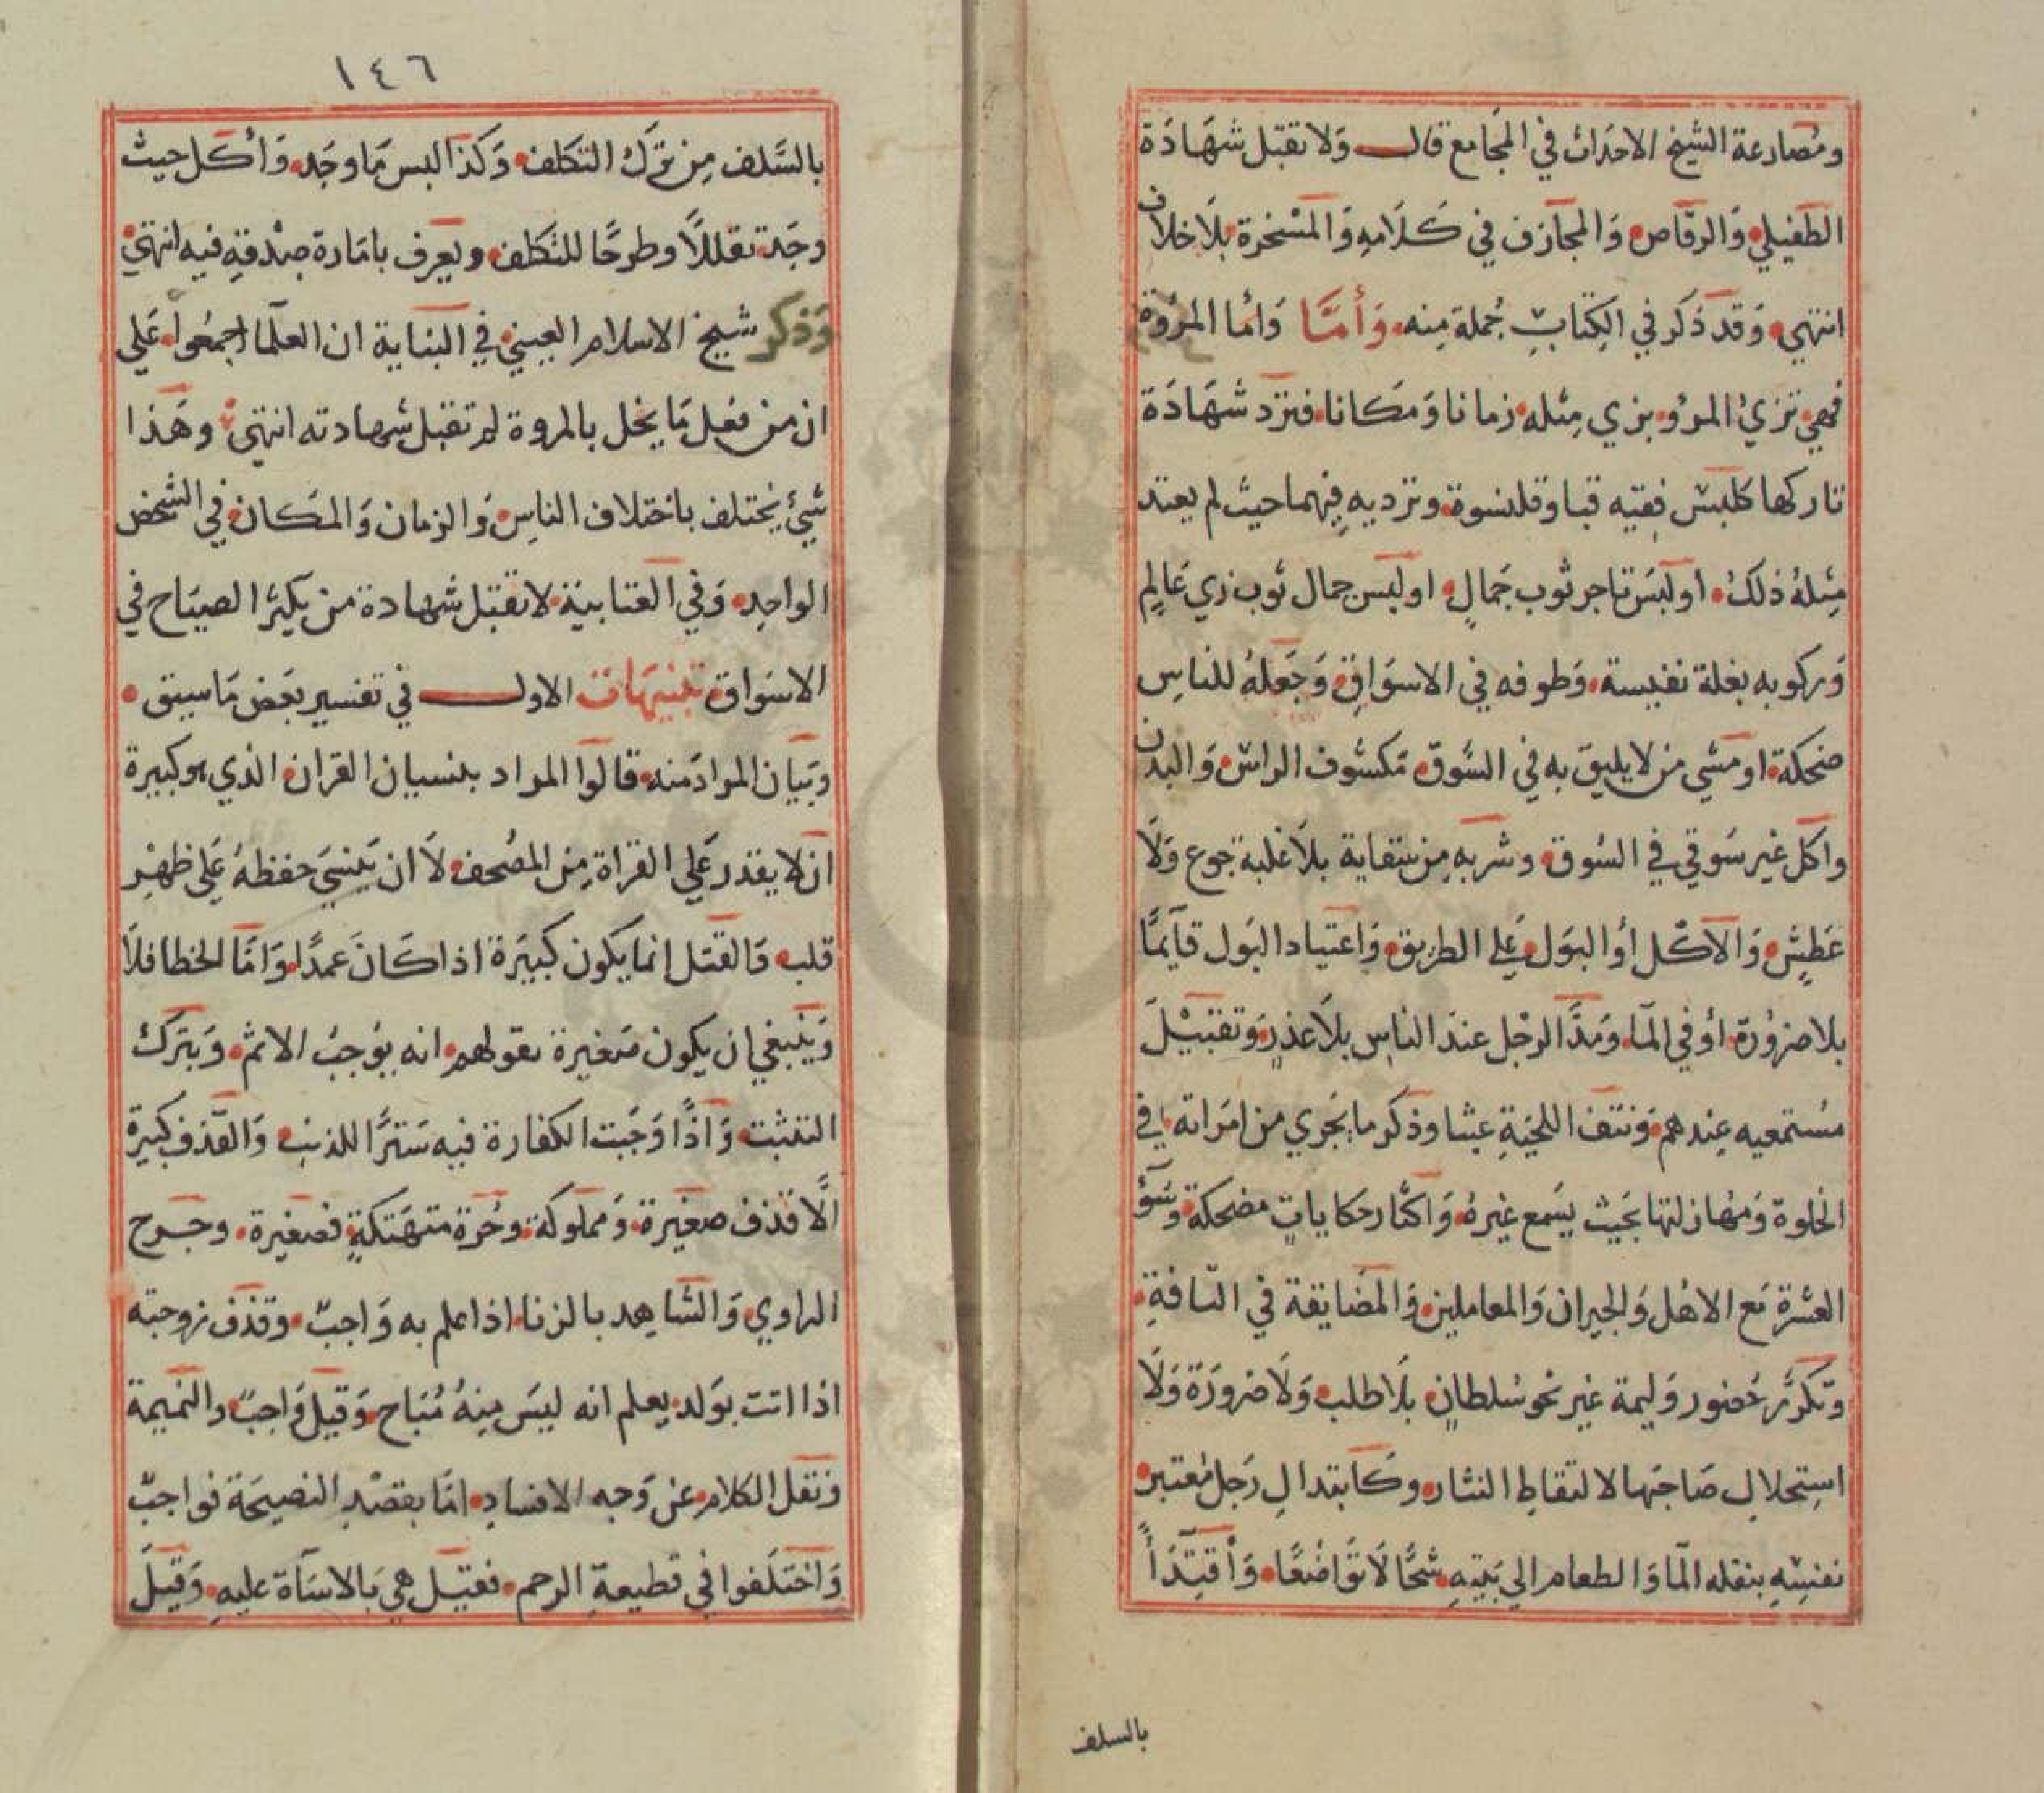 ومصارعة الشيخ الاحداث في المجامع قال ولا تقبل شهادة
الطفيلي والرقاص والمجازف في كلامه والمسخرة بلا خلاف
انتهي وقد ذكر في الكتاب جملة منه وأما وأما المروة
فهي تزيُّ المرؤ بزي مثله زمانا ومكانا فترد شهادة
تاركها كلبس فقيه قبا وقلنسوة وترديه فيهما حيث لم يعتد
مثله ذلك او لبس تاجر ثوب جمال او لبس جمال ثوب زي عالم
وركوبه بغلة نفيسة وطوفه في الاسواق وجعله للناس
ضحكة او مشي من لا يليق به في السوق مكشوف الراس والبدن
واكل غير سوقي في السوق وشربه من سقاية بلا غلبة جوع ولا
عطش والاكل أو البول علي الطريق واعتياد البول قايمًا
بلا ضرورة أو في الما ومد الرجل عند الناس بلا عذر وتقبيل
مستمعيه عندهم ونتف اللحية عبثا وذكر ما يجري من امراته في
الخلوة ومهازلتها بحيث يسمع غيره واكثار حكايات مضحكة وسؤ
العشرة مع الاهل والجيران والمعاملين والمضايقة في التافة
وتكرر حضور وليمة غير نحو سلطان بلا طلب ولا ضرورة ولا
استحلال صاحبها لالتقاط النثار وكابتدال رجل معتبر
نفسه بنقله الما والطعام الي بيته شحًا لا تواضعًا واقتدأً
بالسلف
١٤٦
بالسلف من ترك التكلف وكذا البس ما وجد وأكل حيث
وجد تقللًا وطرحًا للتكلف ويعرف بامارة صدقه فيه انتهي
وذكر شيخ الاسلام العيني في البناية ان العلما اجمعوا علي
ان من فعل ما يخل بالمروة لم تقبل شهادته انتهي وهذا
شيئ يختلف باختلاف الناس والزمان والمكان في الشخص
الواحد وفي العتابية لا تقبل شهادة من يكثر الصياح في
الاسواق تنبيهات الاول في تفسير بعض ما سبق
وبيان المراد منه قالوا المراد بنسيان القران الذي هو كبيرة
ان لا يقدر علي القراة من المصحف لا ان ينسي حفظه علي ظهر
قلب والقتل انما يكون كبيرة اذا كان عمدًا واما الخطا فلا
وينبغي ان يكون صغيرة بقولهم انه يوجب الاثم وبترك
التثبت واذًا وجبت الكفارة فيه سترًا للذنب والقذف كبيرة
الا قذف صغيرة ومملوكة وحرة متهتكة فصغيرة وجرح
الراوي والشاهد بالزنا اذا علم به واجب وقذف زوجته
اذا اتت بولد يعلم انه ليس منه مباح وقيل واجب والنميمة
ونقل الكلام عن وجه الافساد اما بقصد النصيحة فواجب
واختلفوا في قطيعة الرحم فقيل هي بالاساة عليه وقيل